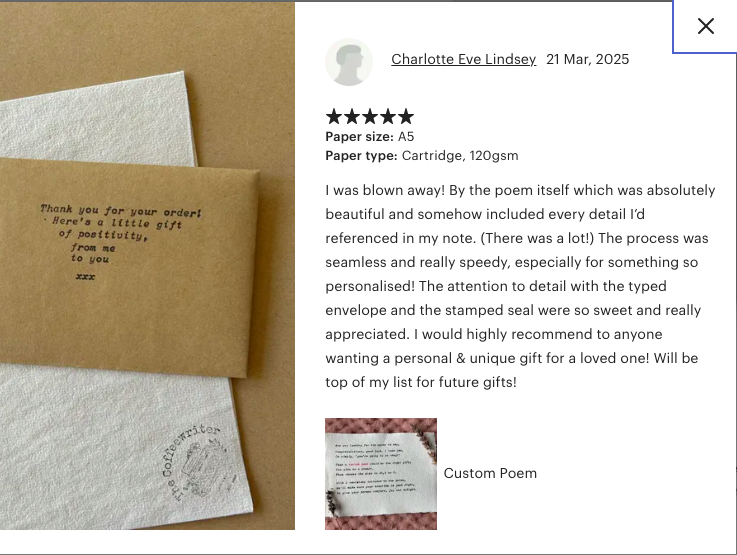 Thank you for your order!
Here's a little gift
of positivity,
from me
to you
xxx
The Coffeewriter
Charlotte Eve Lindsey 21 Mar, 2025
Paper size: A5
Paper type: Cartridge, 120gsm
I was blown away! By the poem itself which was absolutely
beautiful and somehow included every detail I’d
referenced in my note. (There was a lot!) The process was
seamless and really speedy, especially for something so
personalised! The attention to detail with the typed
envelope and the stamped seal were so sweet and really
appreciated. I would highly recommend to anyone
wanting a personal & unique gift for a loved one! Will be
top of my list for future gifts!
Custom Poem